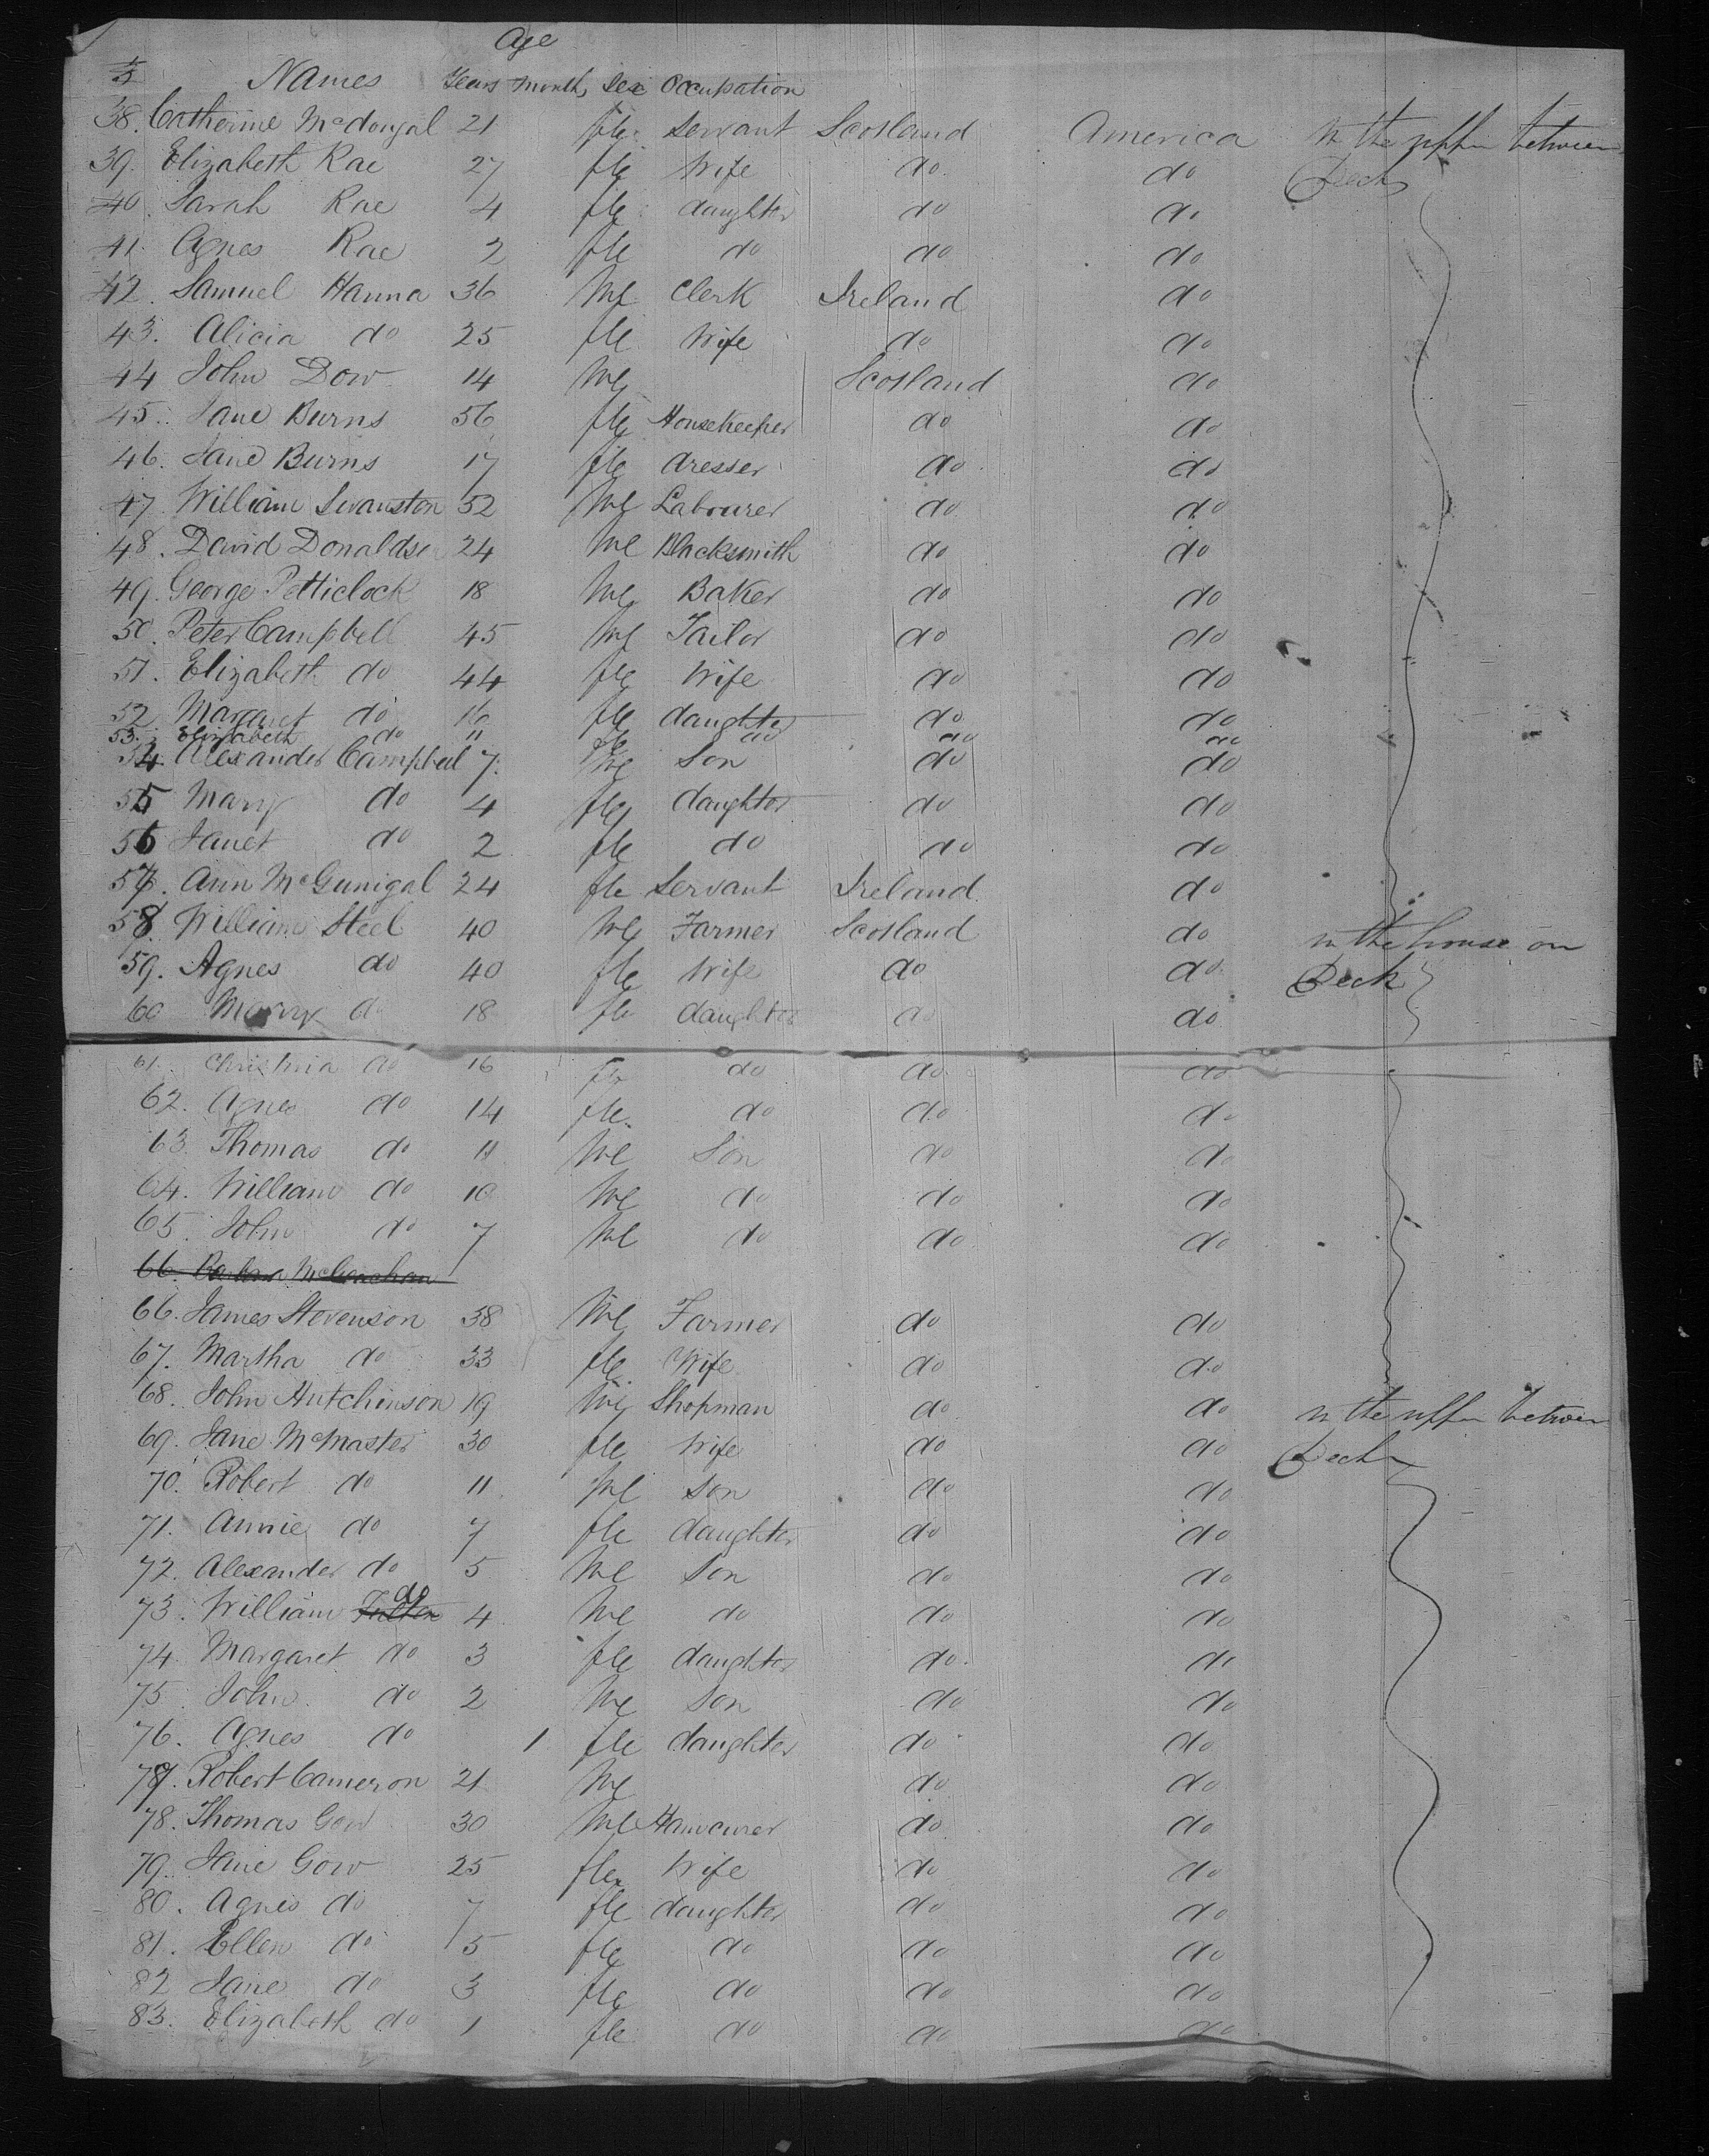 Age
Names Years Month, Sex Occupation
38. Catherine McDougal 21 fle Servant Scotland America in the upper between
39. Elizabeth Rae 27 fle Wife do do Decks
40. Sarah Rae 4 fle daughter do do
41. Agnes Rae 2 fle do do do
42. Samuel Hanna 36 Me Clerk Ireland do
43. Alicia do 25 fle Wife do do
44 John Dow 14 Me Scotland do
45. Jane Burns 56 fle Housekeeper do do
46. Jane Burns 17 fle dresser do do
47 William Swanston 52 Me Labourer do do
48. David Donaldson 24 Me Blacksmith do do
49. George Petticlock 18 Me Baker do do
50. Peter Campbell 45 Me Tailor do do
51. Elizabeth do 44 fle Wife do do
52 Margaret do 16 fle daughter do do
53. Elizabeth do 11 fle do do do
54. Alexander Campbell 7. Me Son do do
55 Mary do 4 fle daughter do do
56 Janet do 2 fle do do do
57. Ann McGunigal 24 fle Servant Ireland do
58 William Steel 40 Me Farmer Scotland do in the house on
59. Agnes do 40 fle Wife do do Deck
60 Mary do 18 fle daughter do do
61. Christina do 16 fle do do do
62. Agnes do 14 fle. do do do
63. Thomas do 11 Me Son do do
64. William do 10 Me do do do
65. John do 7 Me do do do
66.
66. James Stevenson 38 Me Farmer do do
67. Martha do 33 fle Wife do do
68. John Hutchinson 19 Me Shopman do do in the upper between
69. Jane McMaster 30 fle Wife do do Decks
70. Robert do 11 Me Son do do
71. Annie do 7 fle daughter do do
72. Alexander do 5 Me Son do do
73. William do 4 Me do do do
74. Margaret do 3 fle daughter do do
75 John do 2 Me Son do do
76. Agnes do 1 fle daughter do do
77. Robert Cameron 21 Me do do
78. Thomas Gow 30 Me do do
79. Jane Gow 25 fle Wife do do
80. Agnes do 7 fle daughter do do
81. Ellen do 5 fle do do do
82 Jane do 3 fle do do do
83. Elizabeth do 1 fle do do do